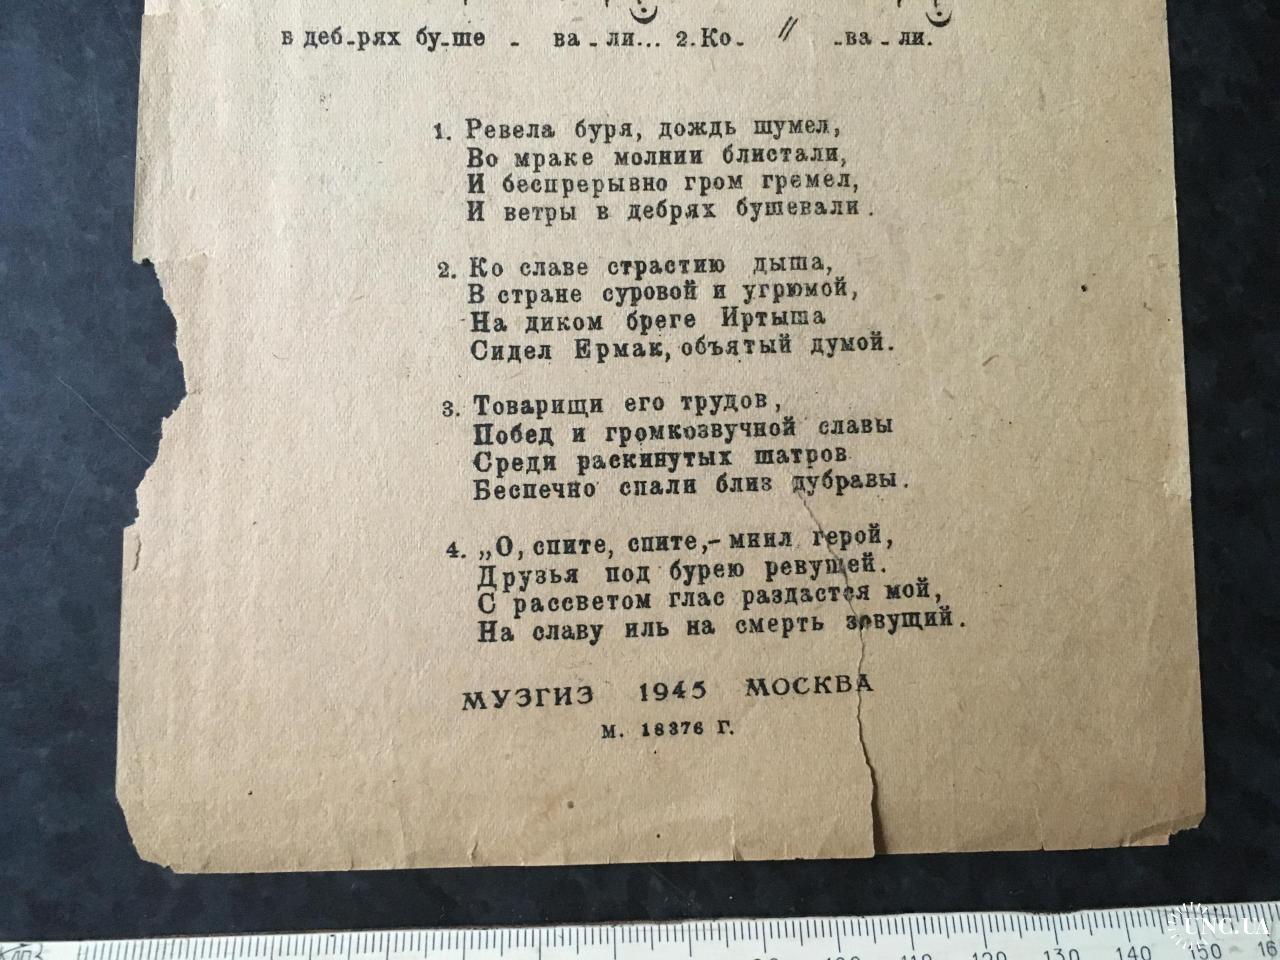 в деб-рях бу-ше - ва - ли... 2. Ко- // -ва - ли.
1. Ревела буря, дождь шумел,
Во мраке молнии блистали,
И беспрерывно гром гремел,
И ветры в дебрях бушевали.
2. Ко славе страстию дыша,
В стране суровой и угрюмой,
На диком бреге Иртыша
Сидел Ермак, объятый думой.
3. Товарищи его трудов,
Побед и громкозвучной славы
Среди раскинутых шатров
Беспечно спали близ дубравы.
4. „О, спите, спите,- мнил герой,
Друзья под бурею ревущей.
С рассветом глас раздастся мой,
На славу иль на смерть зовущий.
МУЗГИЗ 1945 МОСКВА
М. 18376 Г.
110 120 130 140 150 16
UNC.UA